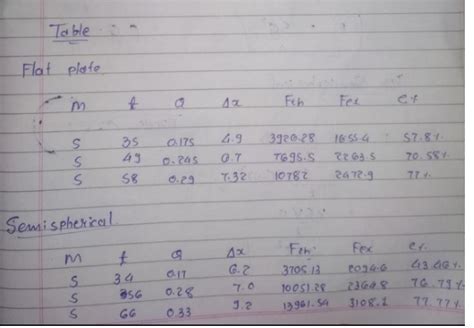 Table
Flat plate
m t Q Δx Fth Fex e%
5 35 0.175 4.9 3920.28 1655.4 57.8%
5 49 0.245 6.7 7695.5 2263.5 70.58%
5 58 0.29 7.32 10782 2472.9 77%
Semispherical
m t Q Δx Fth Fex e%
5 34 0.17 6.2 3705.13 2094.6 43.46%
5 56 0.28 7.0 10051.28 2364.8 76.79%
5 66 0.33 9.2 13961.54 3108.2 77.77%